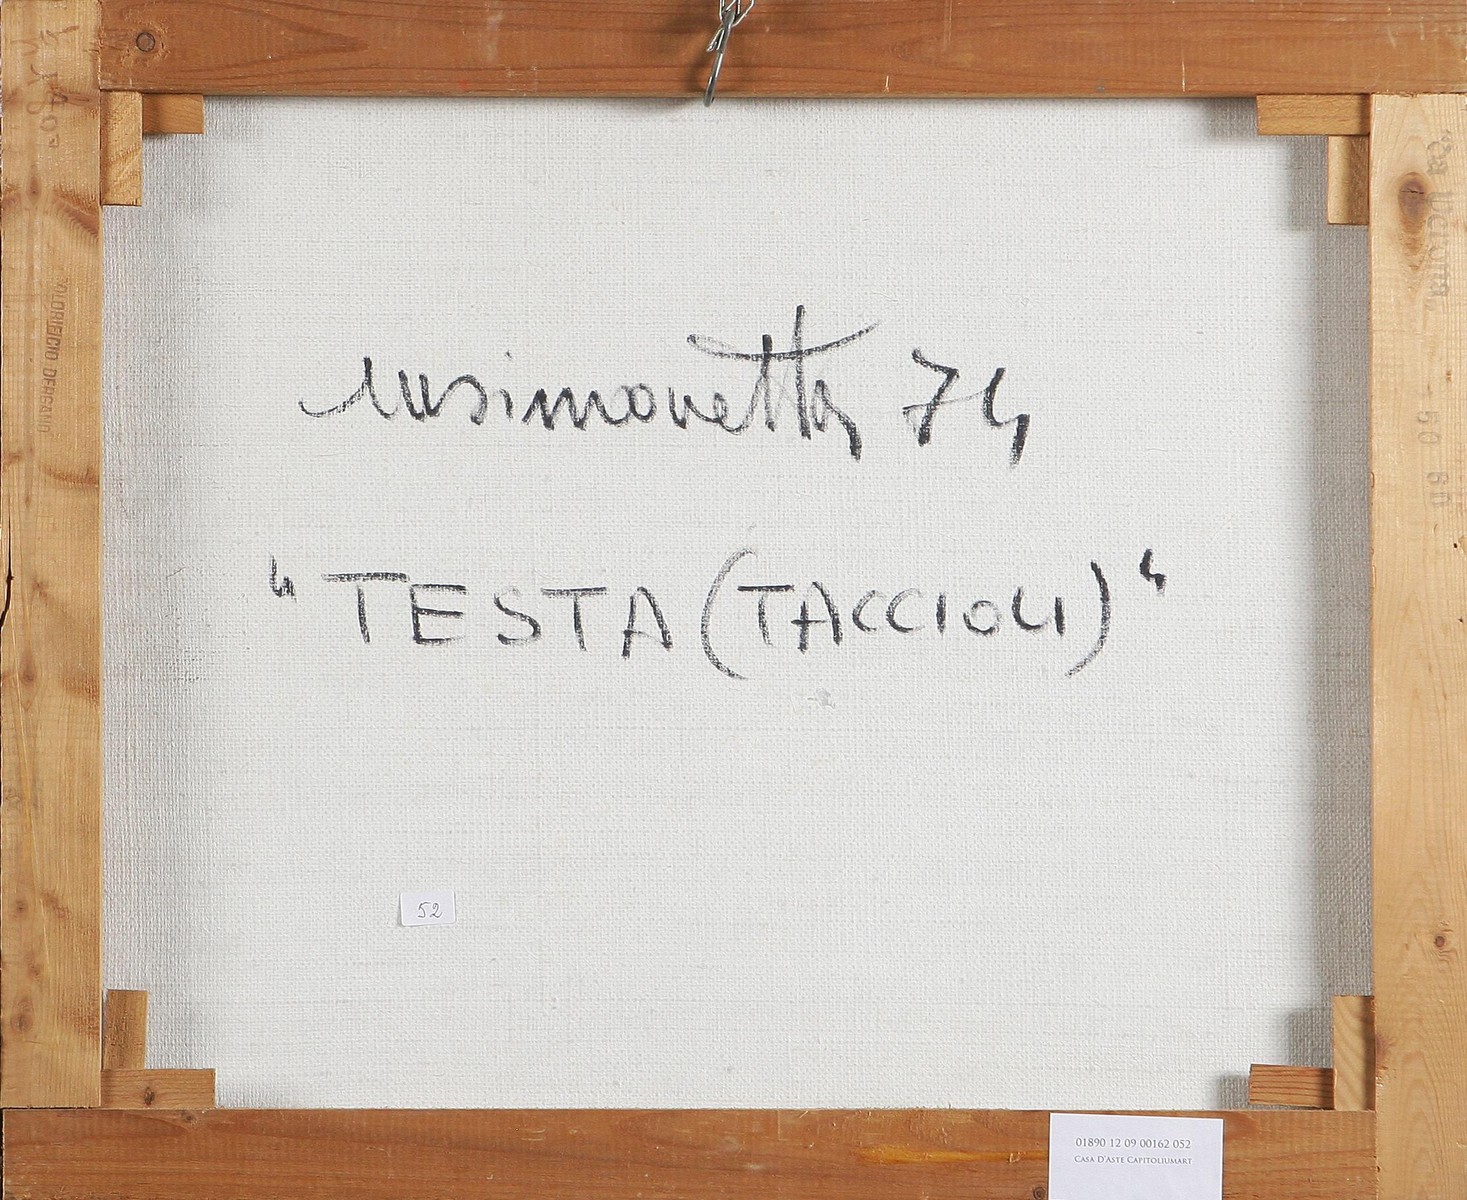 lusimonetta 74
"TESTA (TACCIOLI)"
52
50 60
01890 12 09 00162 052
CASA D'ASTE CAPITOLIUMART